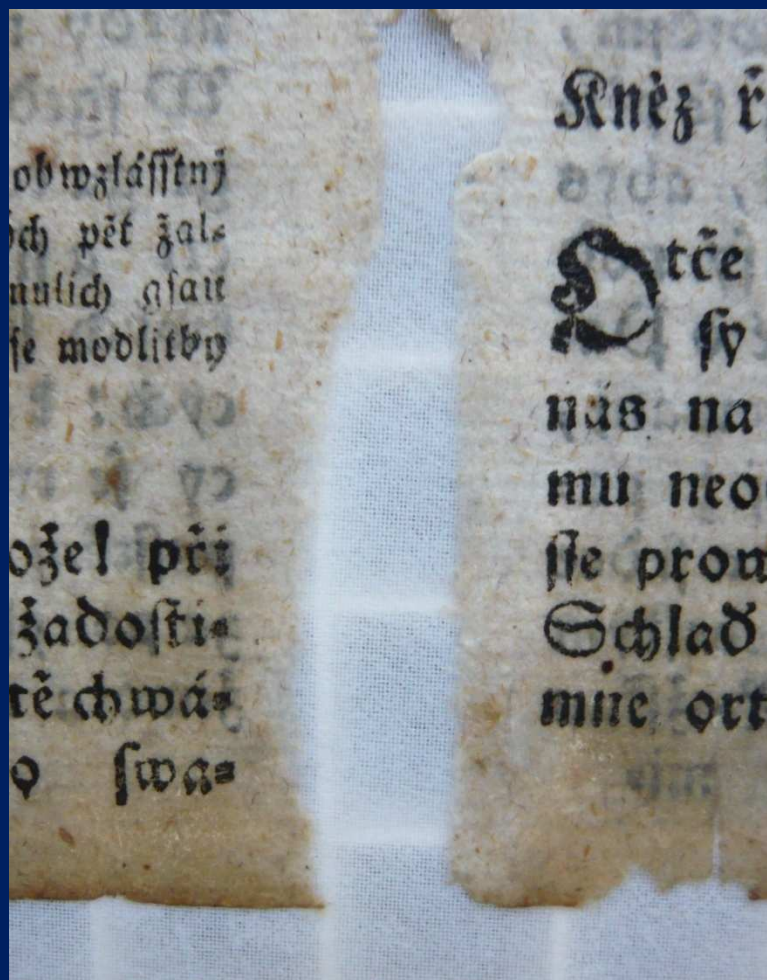 obwzlásſtnỹ
ých pět žal-
nulich gſau
ſe modlitby
ože! při
žadoſti-
tě chwá-
o ſwa-
Kněz ř
Otče
ſy
nás na
mu neo
ſſe prow
Schlaď
mne ort